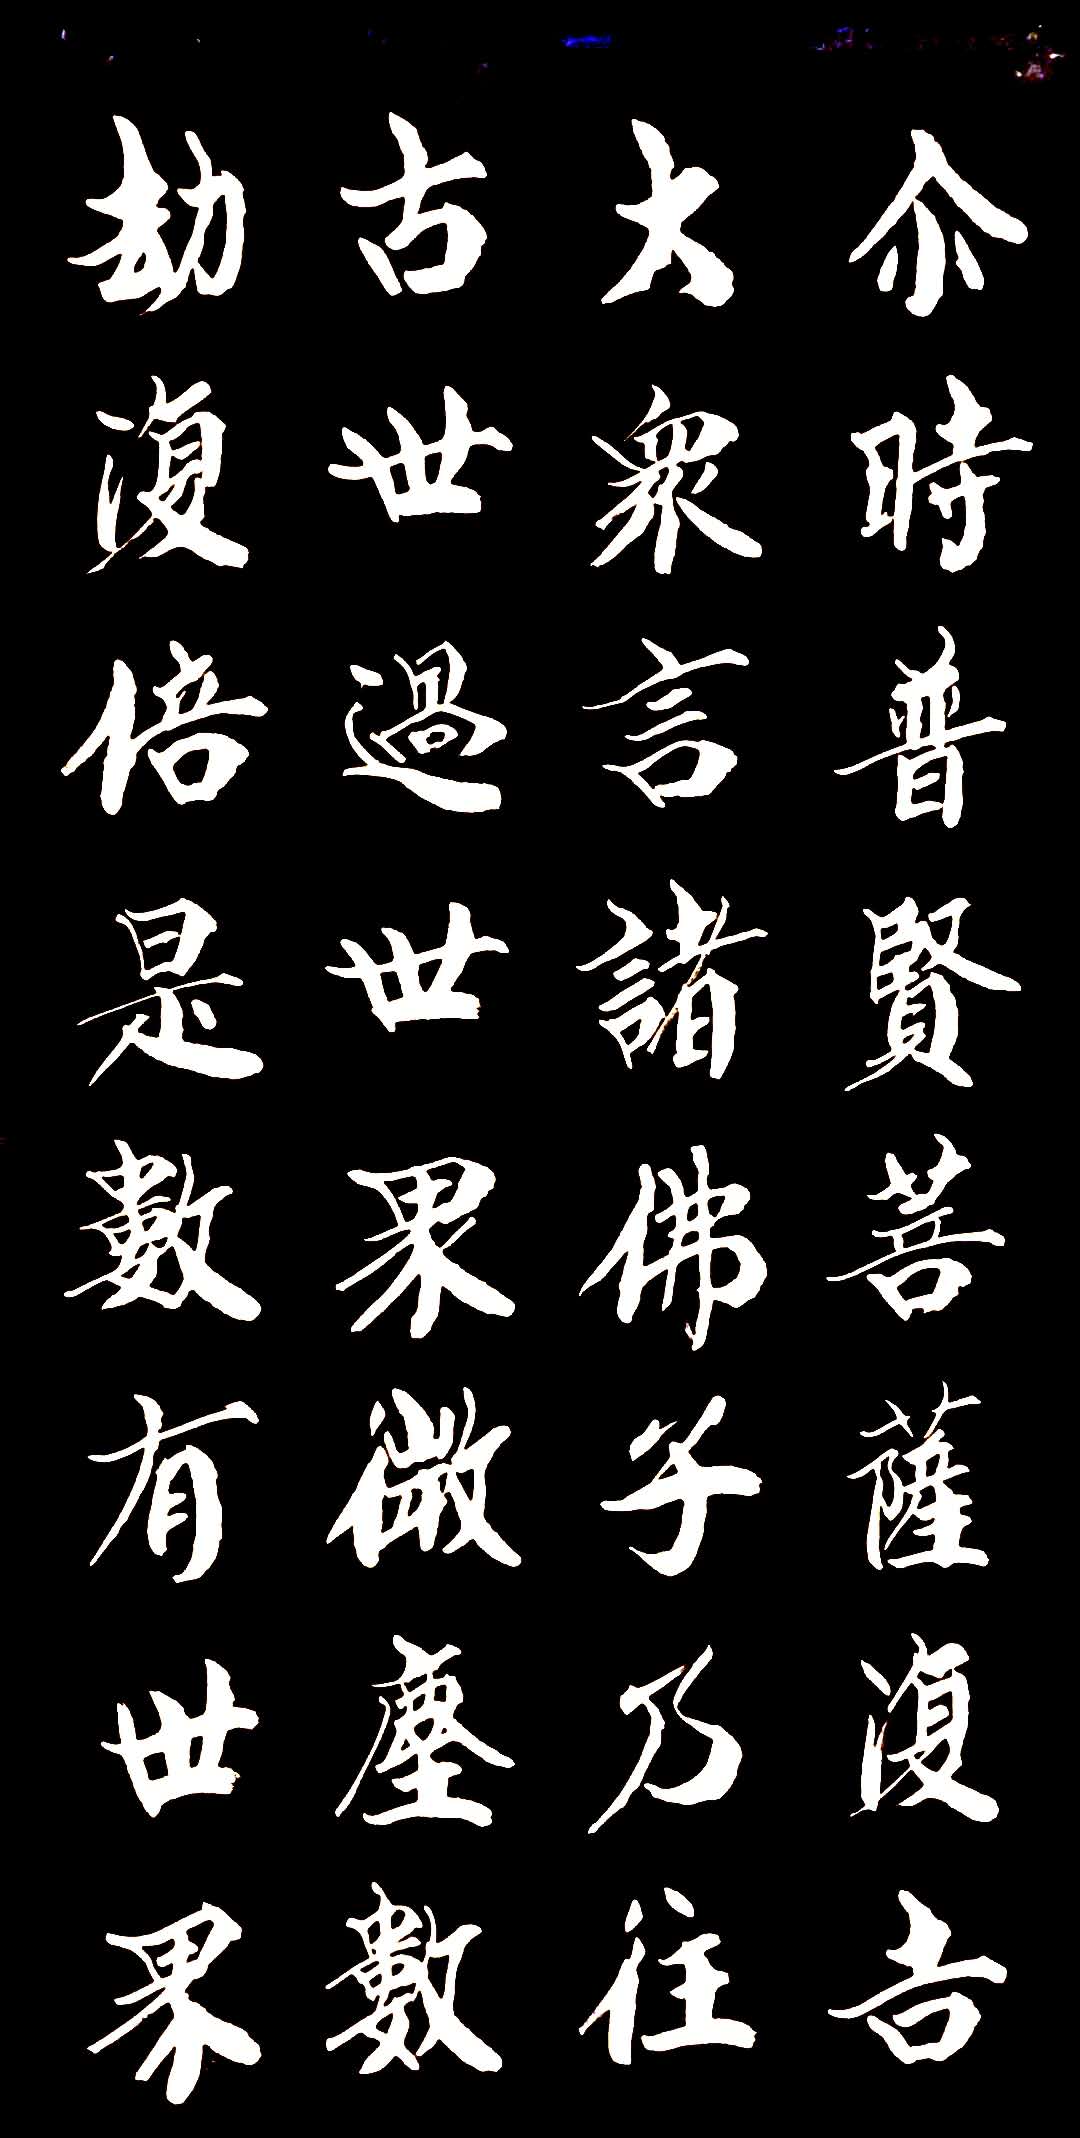 尒時普賢菩薩復告
大衆言諸佛子乃往
古世過世界微塵數
劫復倍是數有世界